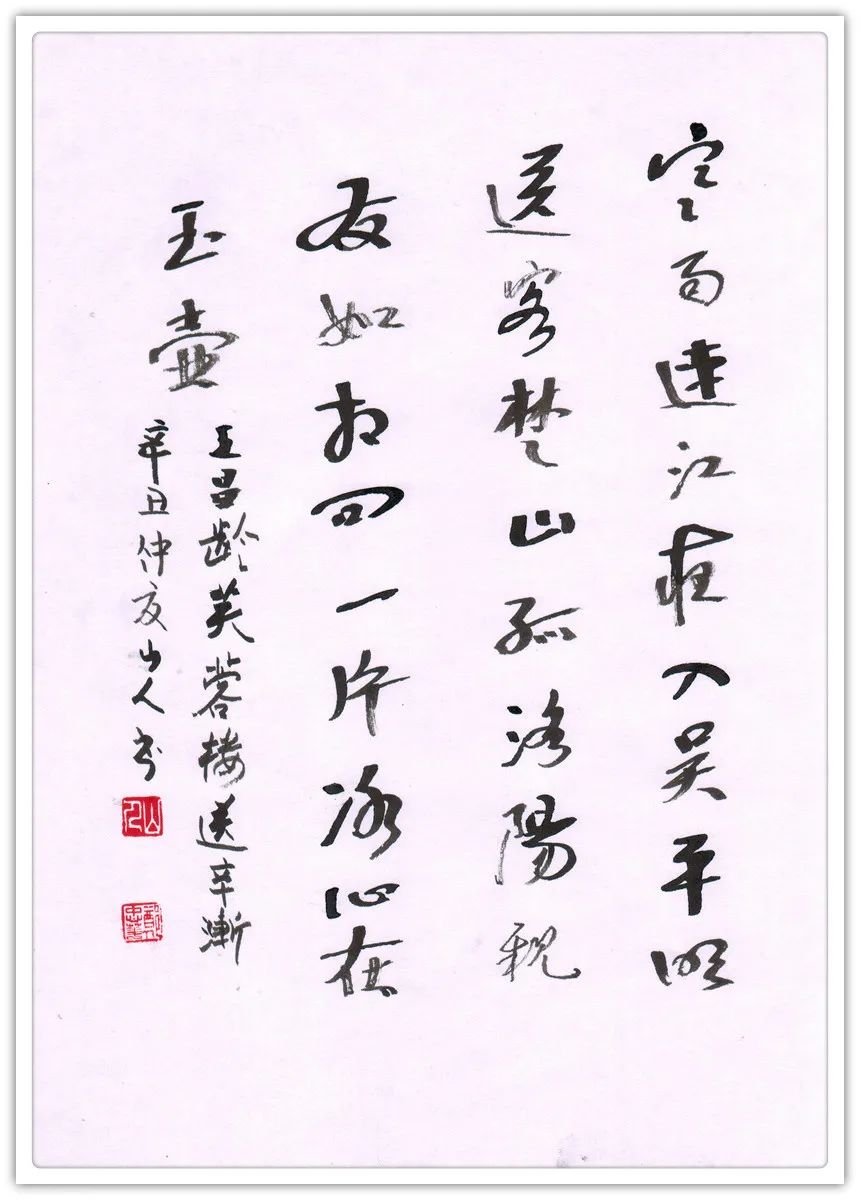 寒雨連江夜入吴平明
送客楚山孤洛陽親
友如相問一片冰心在
玉壺
王昌龄芙蓉楼送辛漸
辛丑仲夏山人书
山人